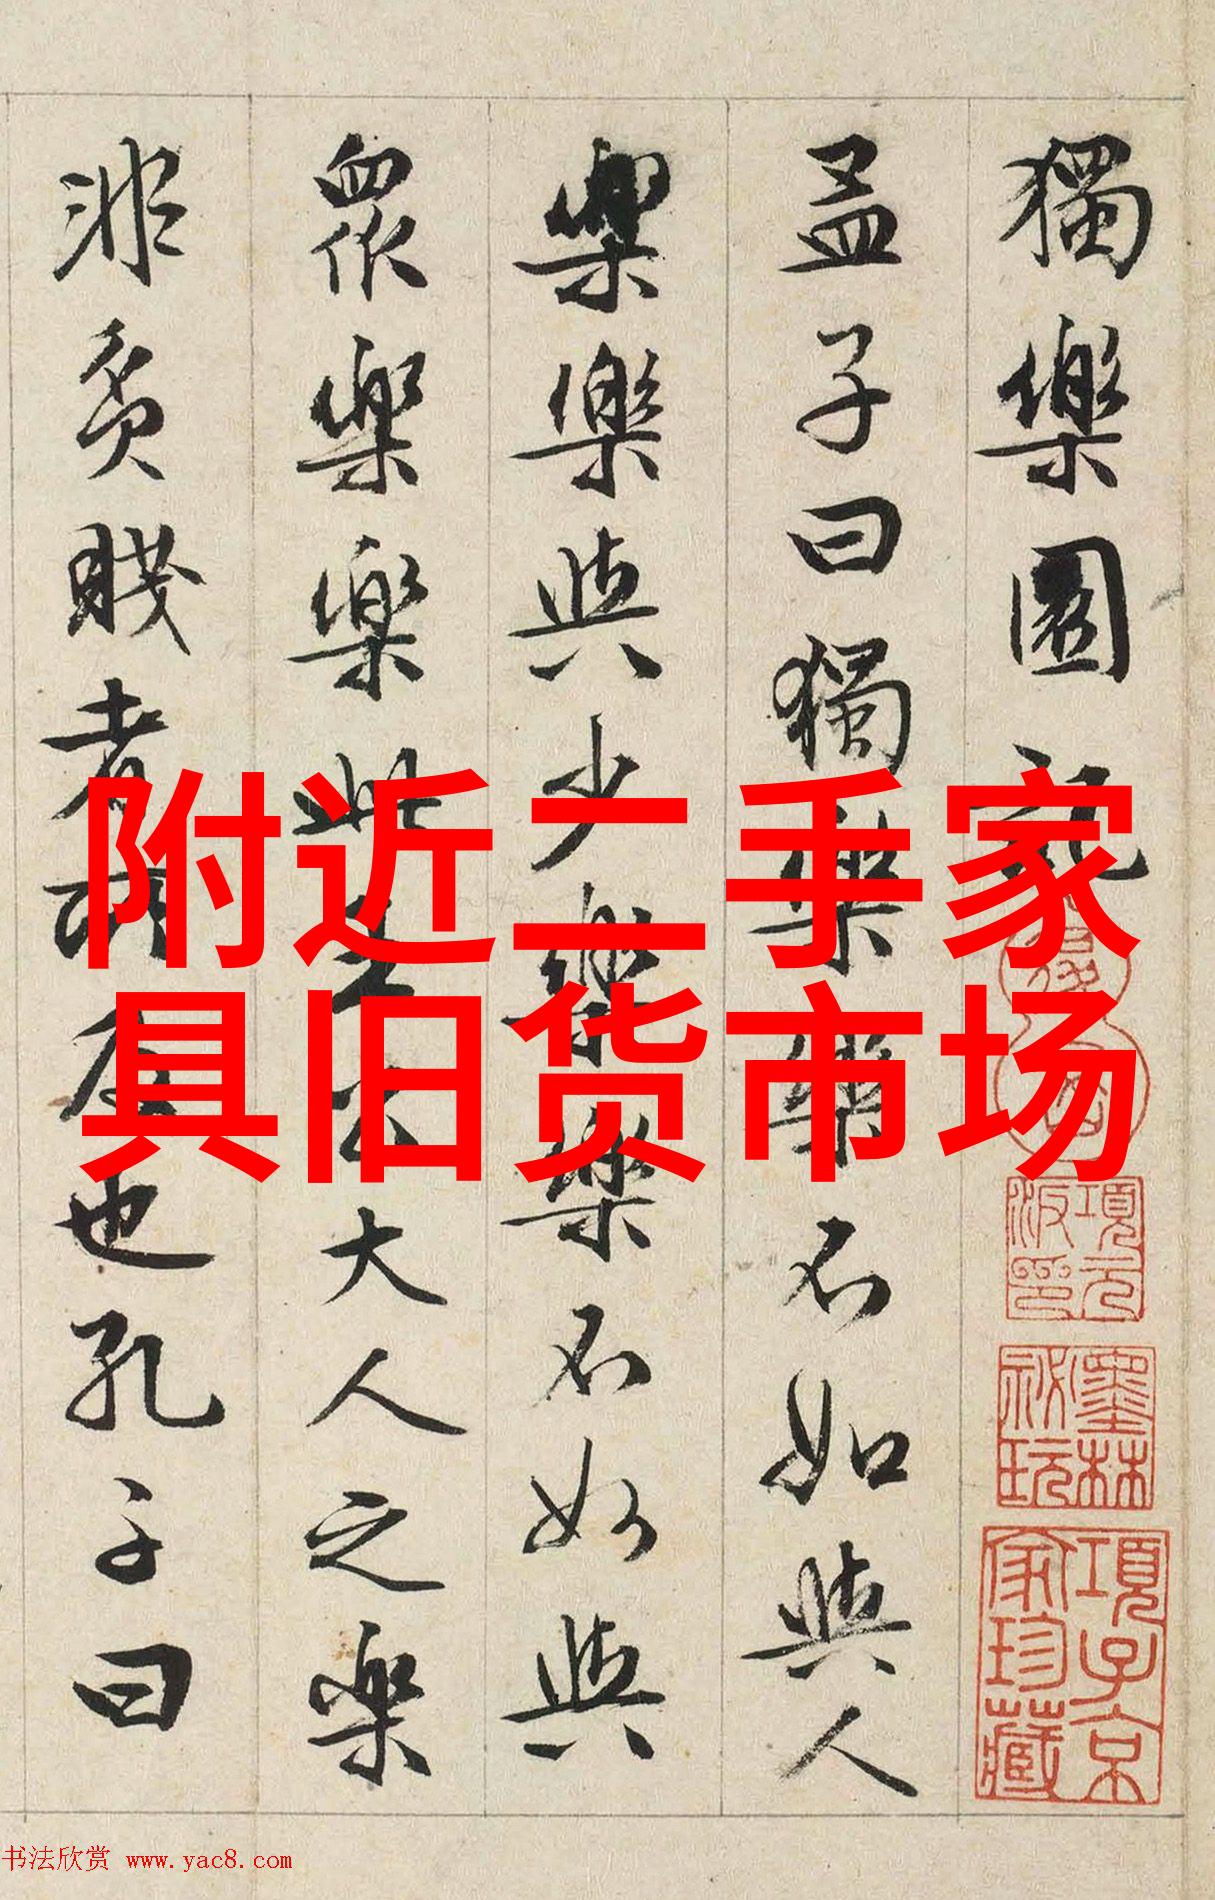 獨樂園記
孟子曰獨樂樂不如與人
樂樂與少樂樂不如與
眾樂樂此王公大人之樂
非貧賤者所及也孔子曰
附近二手家
具旧货市场
項元汴印
墨林祕玩
項子京家珍藏
书法欣赏 www.yac8.com